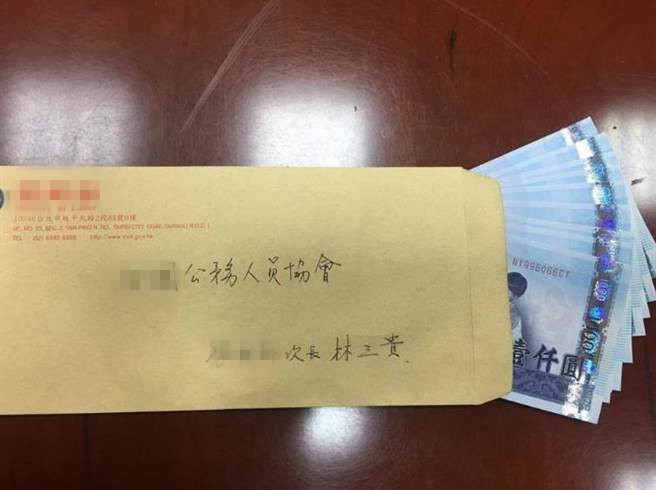 Ministry of Labor
10346台北市延平北路2段83號9樓
9F., NO. 83, SEC. 2, YANPING N. RD., TAIPEI CITY 10346, TAIWAN (R.O.C.)
TEL : (02) http://www.mol.gov.tw
公務人員協會
次長 林三貴
壹仟圓